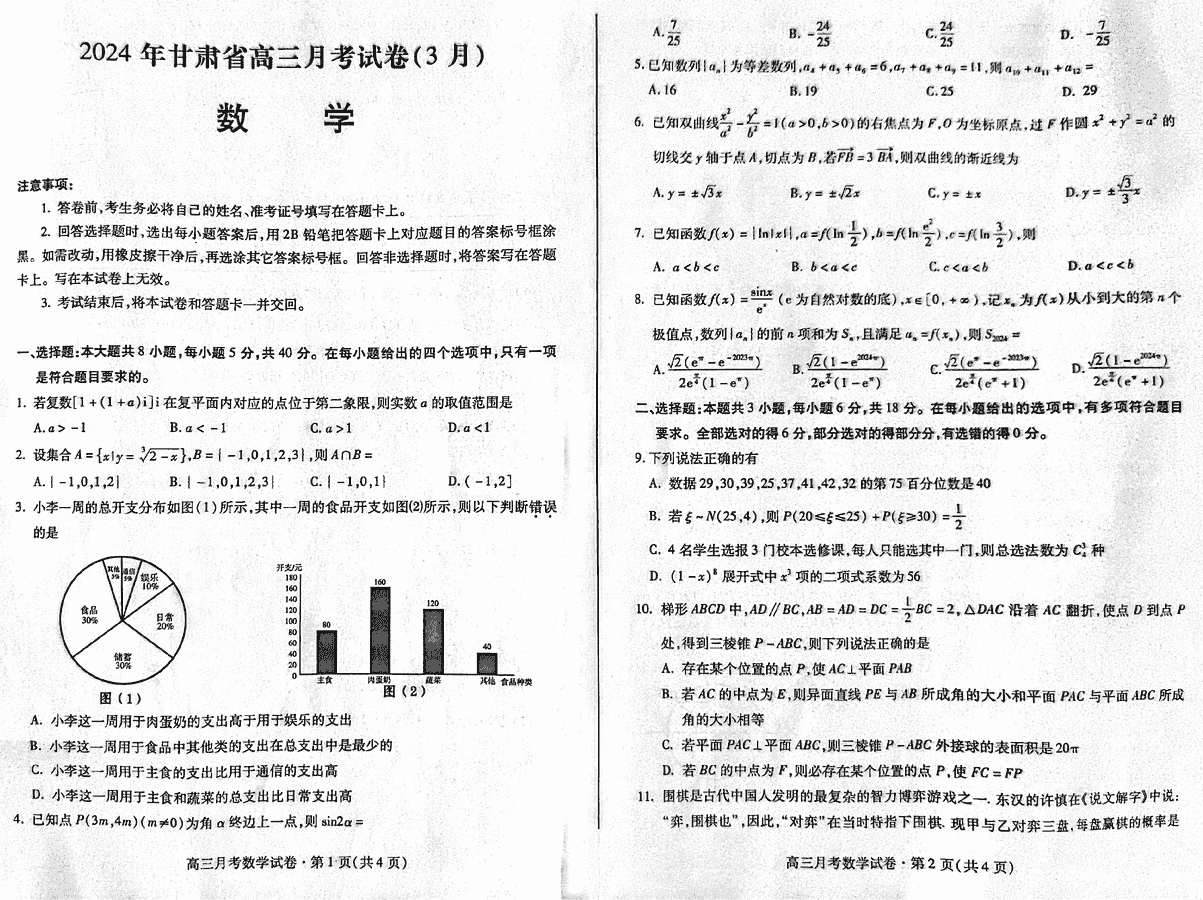 2024 年甘肃省高三月考试卷(3 月)
数 学
注意事项:
1. 答卷前,考生务必将自己的姓名、准考证号填写在答题卡上。
2. 回答选择题时,选出每小题答案后,用 2B 铅笔把答题卡上对应题目的答案标号框涂
黑。如需改动,用橡皮擦干净后,再选涂其它答案标号框。回答非选择题时,将答案写在答题
卡上。写在本试卷上无效。
3. 考试结束后,将本试卷和答题卡一并交回。
一、选择题:本大题共 8 小题,每小题 5 分,共 40 分。在每小题给出的四个选项中,只有一项
是符合题目要求的。
1. 若复数[1+(1+a)i]i 在复平面内对应的点位于第二象限,则实数 a 的取值范围是
A. a > -1 B. a < -1 C. a > 1 D. a < 1
2. 设集合 A = {x|y = ∛(2-x)}, B = {-1,0,1,2,3}, 则 A∩B =
A. {-1,0,1,2} B. {-1,0,1,2,3} C. {-1,0,1} D. (-1,2]
3. 小李一周的总开支分布如图(1)所示,其中一周的食品开支如图(2)所示,则以下判断错误
的是
其他 5% 通信 5% 娱乐 10%
食品 30% 日常 20%
储蓄 30%
图(1)
开支/元
180
160
140
120
100
80
60
40
20
0
80 160 120 40
主食 肉蛋奶 蔬菜 其他 食品种类
图(2)
A. 小李这一周用于肉蛋奶的支出高于用于娱乐的支出
B. 小李这一周用于食品中其他类的支出在总支出中是最少的
C. 小李这一周用于主食的支出比用于通信的支出高
D. 小李这一周用于主食和蔬菜的总支出比日常支出高
4. 已知点 P(3m,4m)(m≠0)为角 α 终边上一点,则 sin2α =
高三月考数学试卷·第 1 页(共 4 页)
A. 7/25 B. -24/25 C. 24/25 D. -7/25
5. 已知数列{aₙ}为等差数列, a₄ + a₅ + a₆ = 6, a₇ + a₈ + a₉ = 11, 则 a₁₀ + a₁₁ + a₁₂ =
A. 16 B. 19 C. 25 D. 29
6. 已知双曲线 x²/a² - y²/b² = 1(a>0,b>0)的右焦点为 F,O 为坐标原点,过 F 作圆 x² + y² = a² 的
切线交 y 轴于点 A,切点为 B,若 →FB = 3 →BA,则双曲线的渐近线为
A. y = ±√3x B. y = ±√2x C. y = ±x D. y = ±√3/3 x
7. 已知函数 f(x) = |ln|x||, a = f(ln 1/2), b = f(ln e²/2), c = f(ln 3/2), 则
A. a < b < c B. b < a < c C. c < a < b D. a < c < b
8. 已知函数 f(x) = sinx/eˣ (e 为自然对数的底), x∈[0, +∞), 记 xₙ 为 f(x)从小到大的第 n 个
极值点,数列{aₙ}的前 n 项和为 Sₙ,且满足 aₙ = f(xₙ),则 S₂₀₂₄ =
A. √2(e^π - e^(-2023π))/(2e^(π/4)(1-e^π)) B. √2(1-e^(2024π))/(2e^(π/4)(1-e^π)) C. √2(e^π - e^(-2023π))/(2e^(π/4)(e^π+1)) D. √2(1-e^(2024π))/(2e^(π/4)(e^π+1))
二、选择题:本题共 3 小题,每小题 6 分,共 18 分。在每小题给出的选项中,有多项符合题目
要求。全部选对的得 6 分,部分选对的得部分分,有选错的得 0 分。
9. 下列说法正确的有
A. 数据 29,30,39,25,37,41,42,32 的第 75 百分位数是 40
B. 若 ξ~N(25,4),则 P(20≤ξ≤25) + P(ξ≥30) = 1/2
C. 4 名学生选报 3 门校本选修课,每人只能选其中一门,则总选法数为 C₄³ 种
D. (1-x)⁸ 展开式中 x³ 项的二项式系数为 56
10. 梯形 ABCD 中, AD∥BC, AB = AD = DC = 1/2 BC = 2, △DAC 沿着 AC 翻折,使点 D 到点 P
处,得到三棱锥 P-ABC,则下列说法正确的是
A. 存在某个位置的点 P,使 AC⊥平面 PAB
B. 若 AC 的中点为 E,则异面直线 PE 与 AB 所成角的大小和平面 PAC 与平面 ABC 所成
角的大小相等
C. 若平面 PAC⊥平面 ABC,则三棱锥 P-ABC 外接球的表面积是 20π
D. 若 BC 的中点为 F,则必存在某个位置的点 P,使 FC = FP
11. 围棋是古代中国人发明的最复杂的智力博弈游戏之一. 东汉的许慎在《说文解字》中说:
“弈,围棋也”,因此,“对弈”在当时特指下围棋. 现甲与乙对弈三盘,每盘赢棋的概率是
高三月考数学试卷·第 2 页(共 4 页)